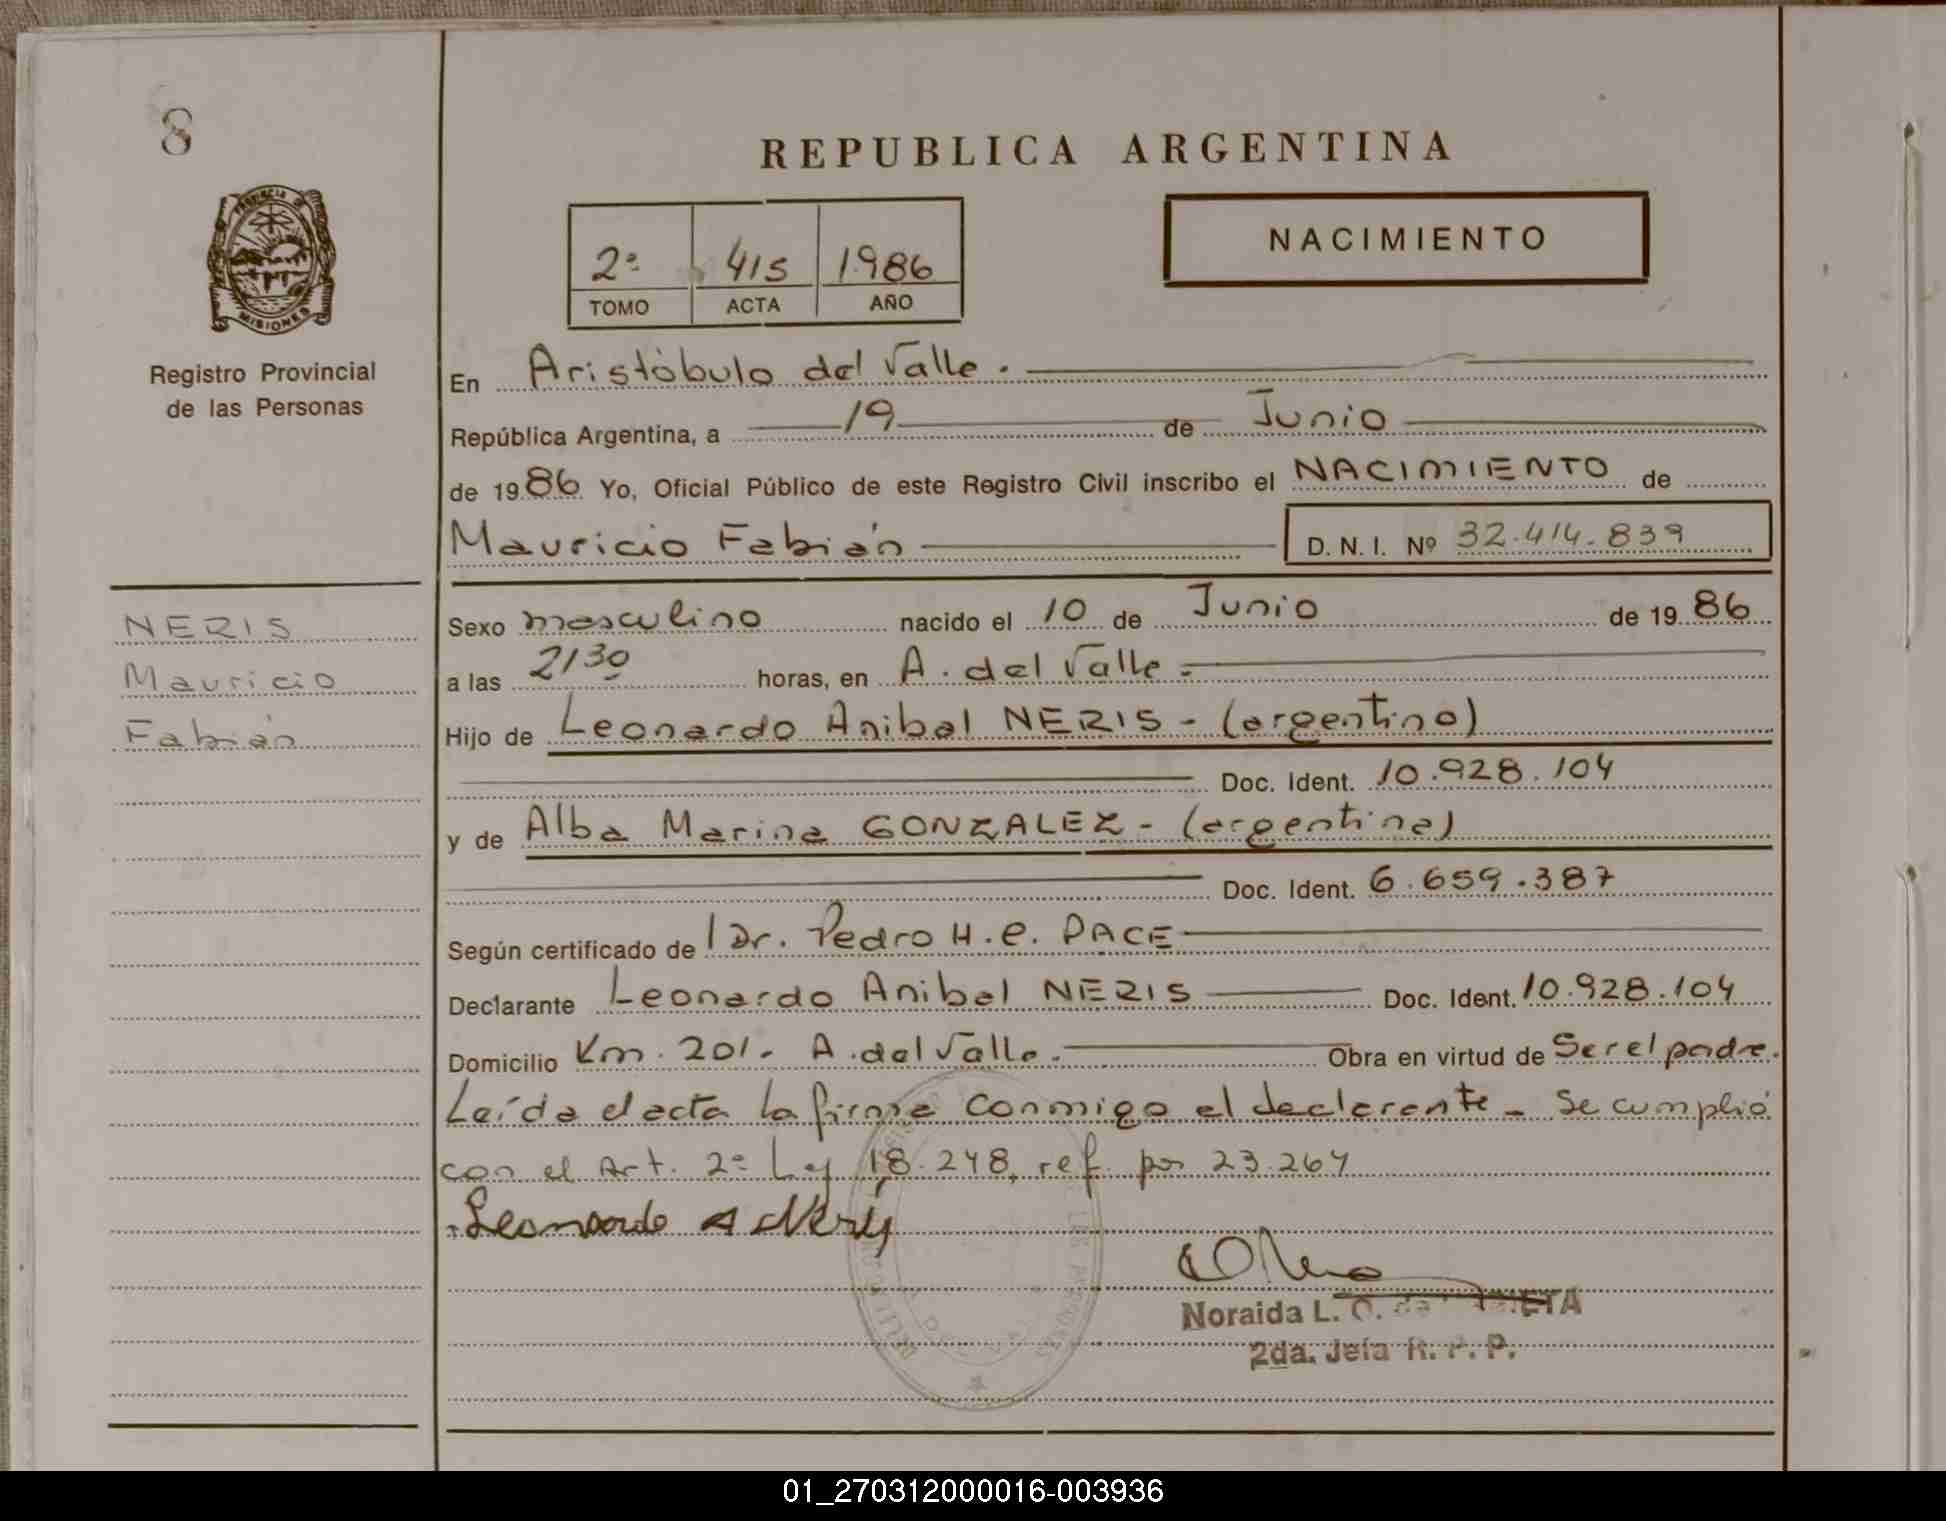 8
REPUBLICA ARGENTINA
PROVINCIA DE
MISIONES
Registro Provincial
de las Personas
2º 415 1986
TOMO ACTA AÑO
NACIMIENTO
En Aristóbulo del Valle.
República Argentina, a 19 de Junio
de 1986 Yo, Oficial Público de este Registro Civil inscribo el NACIMIENTO de
Mauricio Fabián D. N. I. Nº 32.414.839
NERIS
Mauricio
Fabián
Sexo masculino nacido el 10 de Junio de 1986
a las 2130 horas, en A. del Valle -
Hijo de Leonardo Anibal NERIS - (argentino)
Doc. Ident. 10.928.104
y de Alba Marina GONZALEZ - (argentina)
Doc. Ident. 6.659.387
Según certificado de Dr. Pedro H. e. PACE
Declarante Leonardo Anibal NERIS Doc. Ident. 10.928.104
Domicilio Km. 201. A. del Valle. Obra en virtud de Ser el padre.
Leída el acta la firma conmigo el declarente - Se cumplió
con el Art. 2º Ley 18.248, ref. por 23.264
Leonardo A Neris
Noraida L. O. de
2da. Jefa R. P. P.
01_270312000016-003936